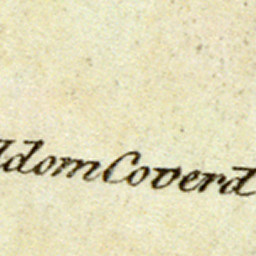 ldom Coverd